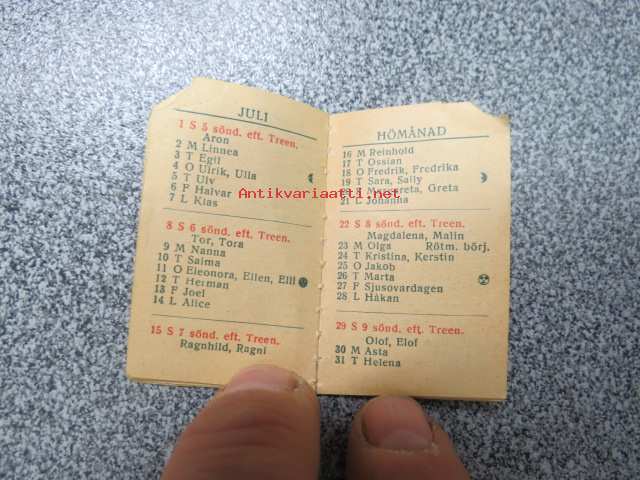 JULI
1 S 5 sönd. eft. Treen.
Aron
2 M Linnea
3 T Egil
4 O Ulrik, Ulla
5 T Ulv
6 F Halvar
7 L Klas
8 S 6 sönd. eft. Treen.
Tor, Tora
9 M Nanna
10 T Saima
11 O Eleonora, Ellen, Elli
12 T Herman
13 F Joel
14 L Alice
15 S 7 sönd. eft. Treen.
Ragnhild, Ragni
HÖMÅNAD
16 M Reinhold
17 T Ossian
18 O Fredrik, Fredrika
19 T Sara, Sally
Margareta, Greta
21 L Johanna
22 S 8 sönd. eft. Treen.
Magdalena, Malin
23 M Olga Rötm. börj.
24 T Kristina, Kerstin
25 O Jakob
26 T Marta
27 F Sjusovardagen
28 L Håkan
29 S 9 sönd. eft. Treen.
Olof, Elof
30 M Asta
31 T Helena
Antikvariaatti.net